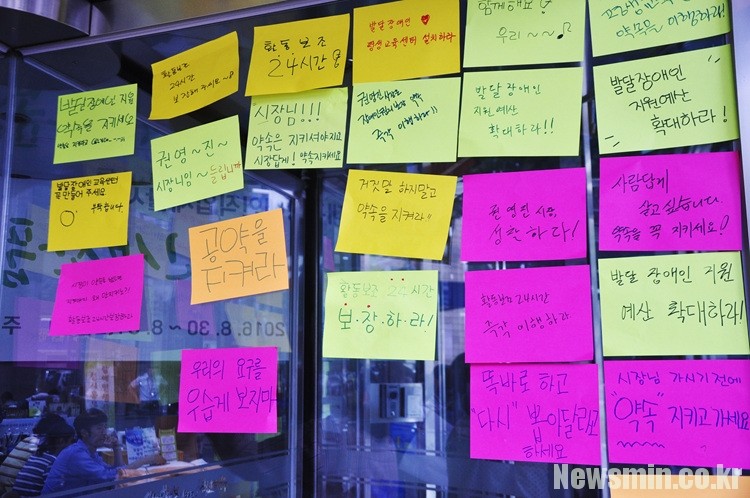 발달장애인 지원
약속을 지키세요
활동보조
24시간
보장해 주세요~
활동보조
24시간
발달장애인
평생교육센터 설치하라
함께해요
우리~~
약속을 이행하라!
시장님!!!
약속은 지키셔야지요
시장답게! 약속지키세요
즉각 이행하라
발달 장애인
지원예산
확대하라!!
발달장애인
지원예산
확대하라!
권영~진~
시장니임~들립니까
발달장애인교육센터
꼭 만들어 주세요
거짓말 하지말고
약속을 지켜라
권영진 시장
성찬하다!
사람답게
살고싶습니다.
약속을 꼭 지키세요!
공약을
지켜라
활동보조 24시간
보·장·하·라!
활동보조24시간
즉각 이행하라
발달 장애인 지원
예산 확대하라!
2016.8.30~8.
우리의 요구를
우습게 보지마
똑바로 하고
"다시" 뽑아달라고
하세요
시장님 가시기전에
"약속" 지키고가세요
Newsmin.co.kr